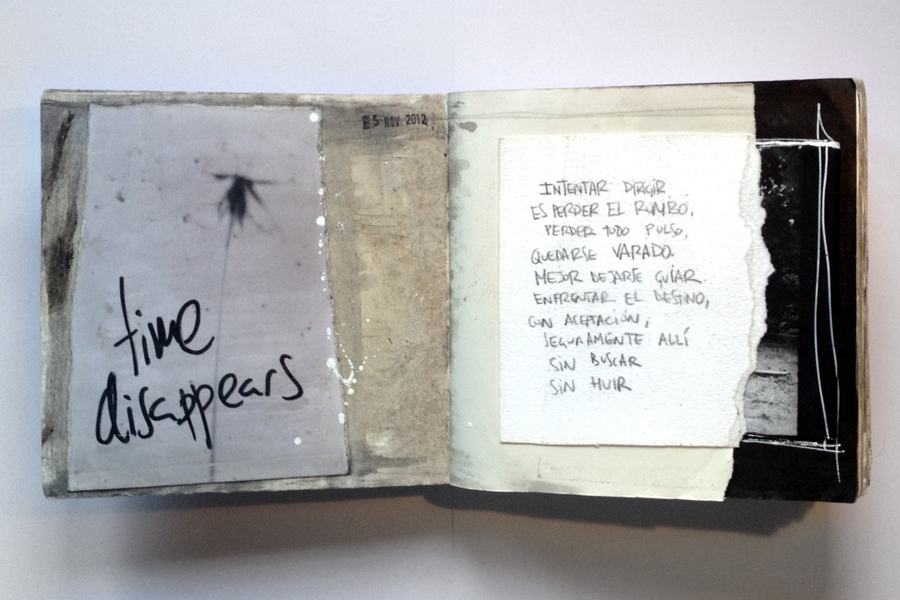 time
disappears
5 NOV 2012
INTENTAR DIRIGIR
ES PERDER EL RUMBO,
PERDER TODO PULSO,
QUEDARSE VARADO.
MEJOR DEJARSE GUIAR.
ENFRENTAR EL DESTINO,
CON ACEPTACIÓN,
SEGURAMENTE ALLÍ
SIN BUSCAR
SIN HUIR